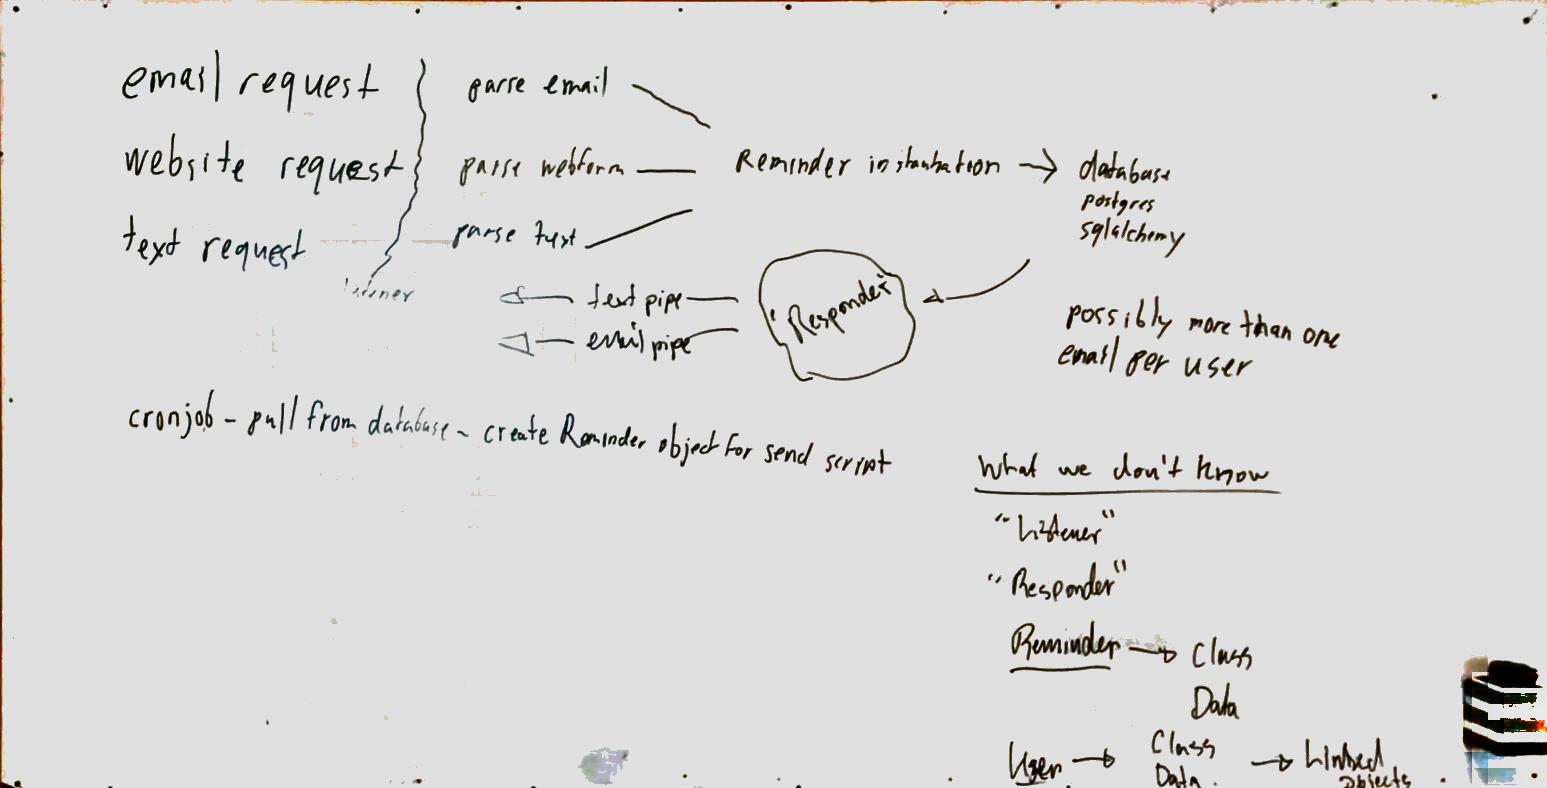 email request
website request
text request
listener
parse email
parse webform
parse text
Reminder instantiation
database
postgres
sqlalchemy
text pipe
email pipe
"Responder"
possibly more than one
email per user
cronjob - pull from database - create Reminder object for send script
What we don't know
"Listener"
"Responder"
Reminder → Class
Data
User → Class → Linked
Data Objects